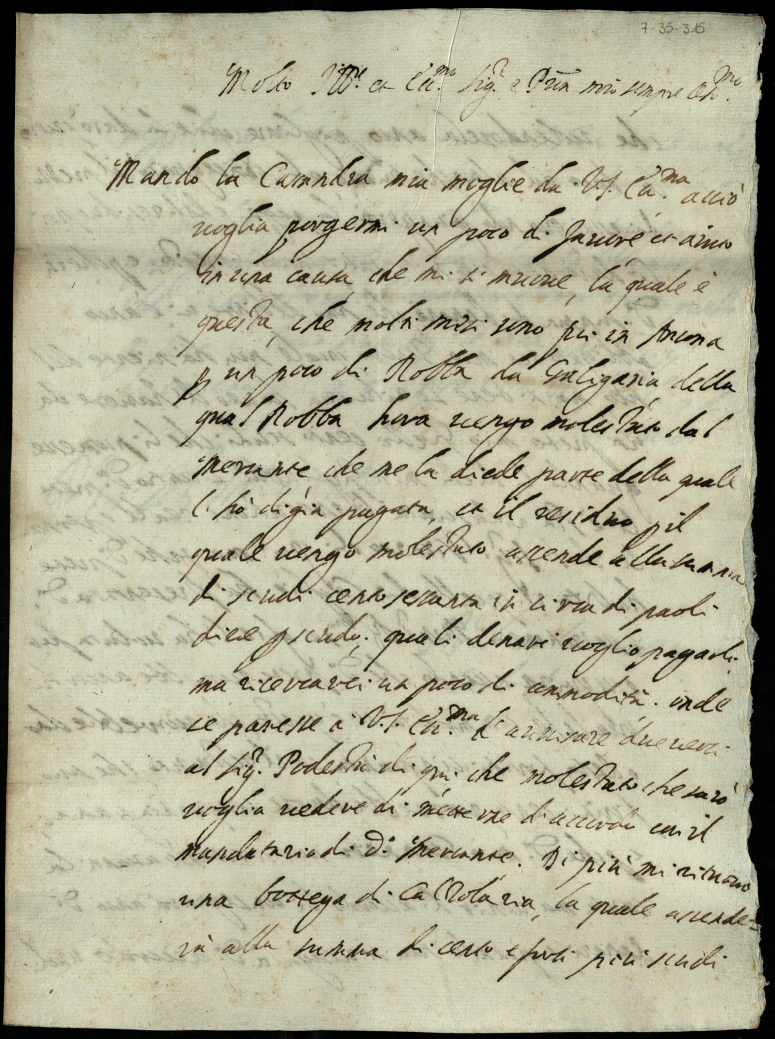 7-35-315
Molto Ill.re et Ecc.mo Sig.r e P.ron mio sempre oss.mo
Mando la Camilla mia moglie da V.S. Ecc.ma acciò
voglia porgermi un poco di favore et aiuto
in una causa, che mi si muove, la quale è
questa, che molti mesi sono, fui in Ancona
p un poco di Robba da Caligaria della
qual Robba hora vengo molestato dal
Mercante, che me la diede parte della quale
l'hò digià pagata, et il residuo p il
quale vengo molestato ascende alla summa
di scudi cento sessanta in circa di paoli
dieci p scudo, quali denari voglio pagarli
ma ricercarei un poco di commodità. onde
se paresse à V.S. Ecc.ma d'avvisare due versi
al Sig.r Podestà di qui che molestato che sarò
voglia vedere di metterne d'accordo con il
mandatario di d.o Mercante. Di più mi ritrovo
una bottega di Calzolaria, la quale ascende-
rà alla summa di cento e forsi più scudi